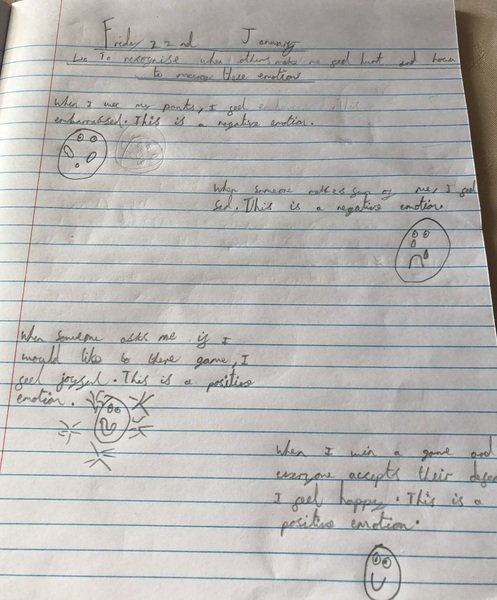 Friday 22nd January
Lo To recognise when others make me feel hurt and how
to manage these emotions
When I wee my pants, I feel
embarrassed. This is a negative emotion.
When someone makes fun of me, I feel
sad. This is a negative emotion.
When someone asks me if I
would like to there game, I
feel joyful. This is a positive
emotion.
When I win a game and
everyone accepts their defea
I feel happy. This is a
positive emotion.